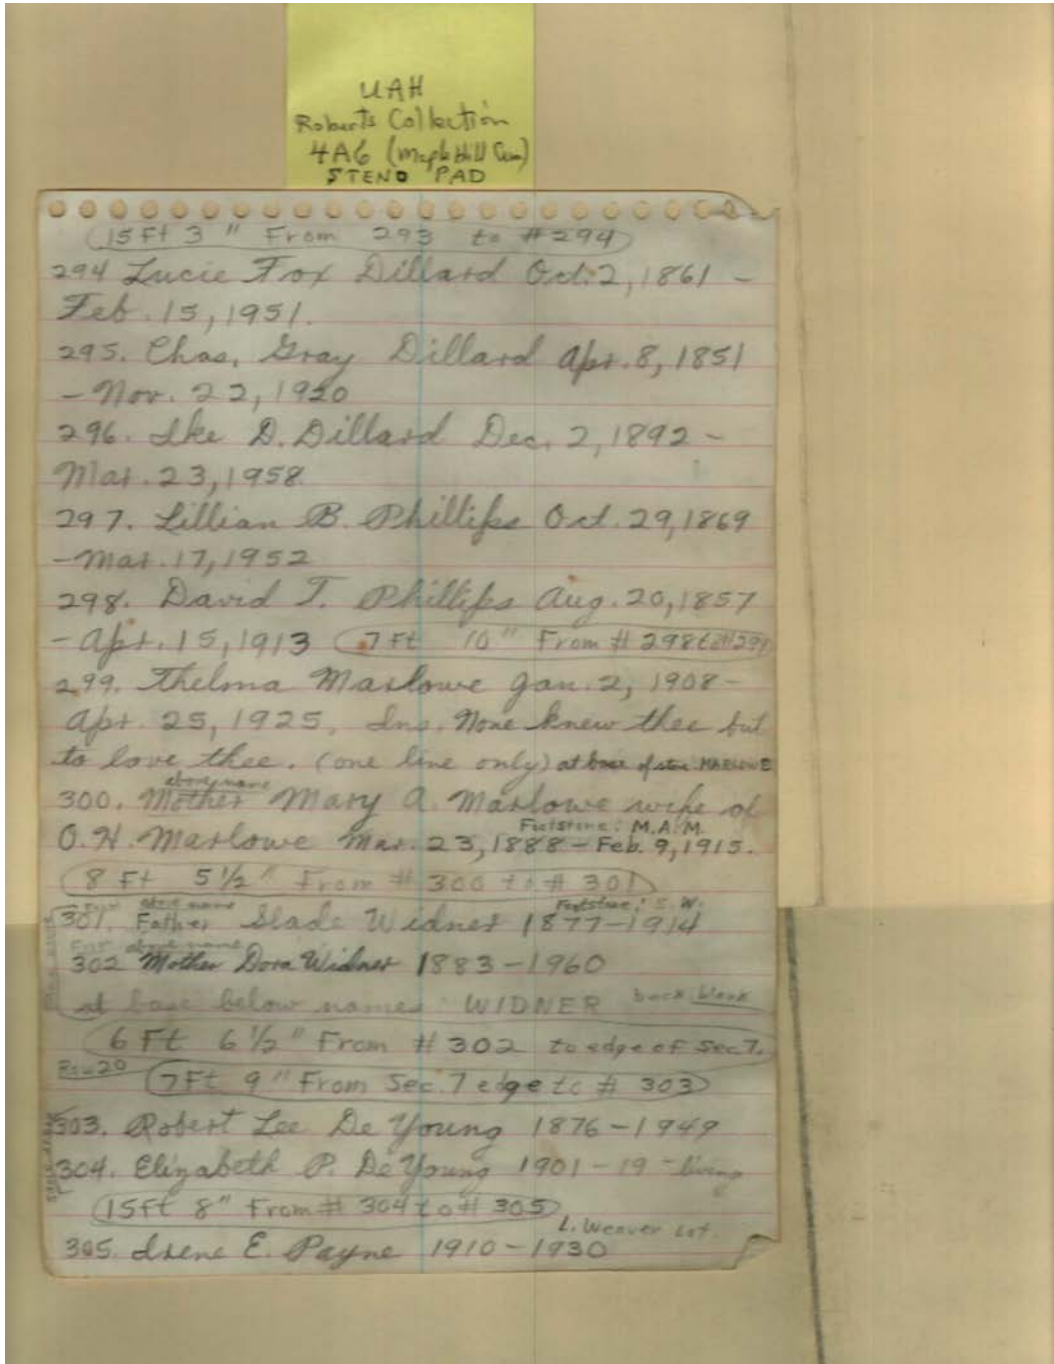 UAH
Roberts Collection
4A6 (Maple Hill Cem)
STENO PAD
15 Ft 3 " From 293 to #294
294 Lucie Fox Dillard Oct. 2, 1861 -
Feb. 15, 1951.
295. Chas. Gray Dillard Apr. 8, 1851
- Nov. 22, 1920
296. Ike D. Dillard Dec. 2, 1892 -
Mar. 23, 1958.
297. Lillian B. Phillips Oct. 29, 1869
- Mar. 17, 1952
298. David T. Phillips Aug. 20, 1857
- Apr. 15, 1913 7 Ft 10" From # 298 to #299
299. Thelma Marlowe Jan. 2, 1908 -
Apr. 25, 1925, Ins. None knew thee but
to love thee. (one line only) at base of stone MARLOWE
above name
300. Mother Mary A. Marlowe wife of
Footstone: M.A.M.
O.H. Marlowe Mar. 23, 1888 - Feb. 9, 1915.
8 Ft 5 1/2 " From # 300 to # 301
above name Footstone: S. W.
301. Father Slade Widner 1877-1914
above name
302 Mother Dora Widner 1883-1960
at base below names: WIDNER back blank
6 Ft 6 1/2 " From # 302 to edge of Sec. 7.
Row 20
7 Ft 9 " From Sec. 7 edge to # 303
303. Robert Lee De Young 1876-1949
304. Elizabeth P. De Young 1901-19 - living
15 Ft 8" From # 304 to # 305
L. Weaver Lot.
305. Irene E. Payne 1910-1930